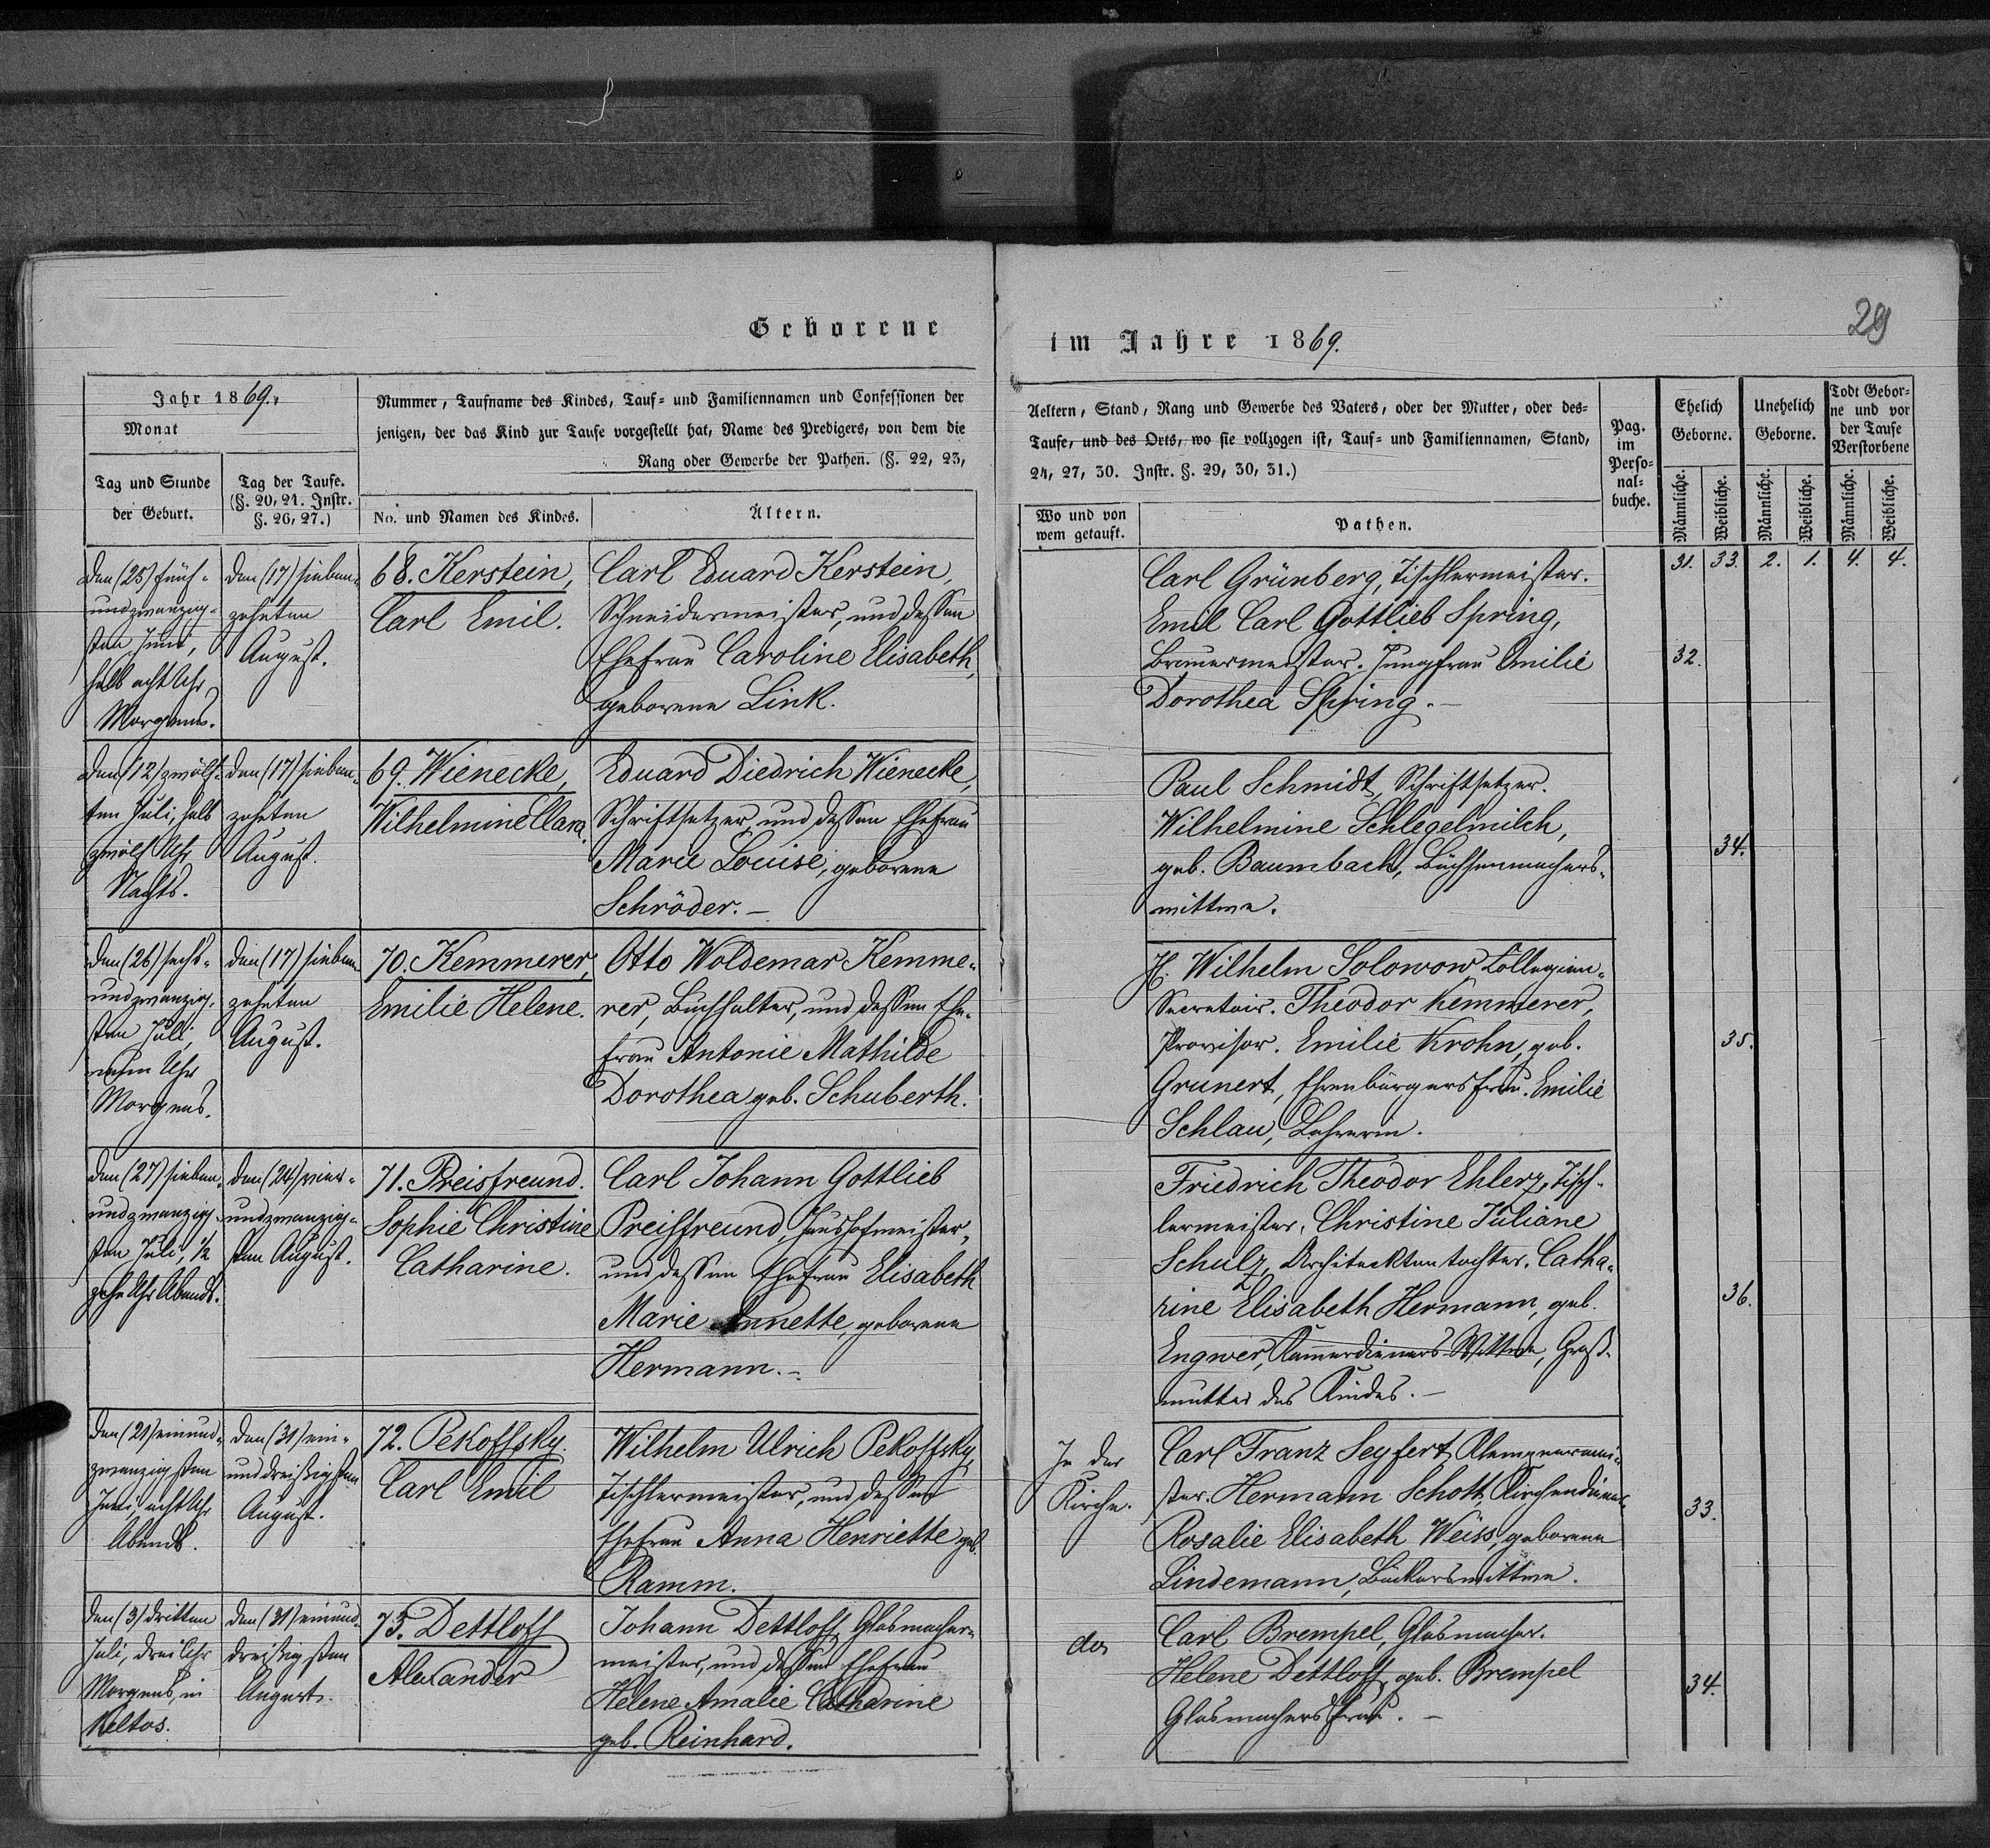 29
Geborene
im Jahre 1869.
Jahr 1869.
Monat
Tag und Stunde
der Geburt.
Tag der Taufe.
(§. 20, 21. Instr.
§. 26, 27.)
Nummer, Taufname des Kindes, Tauf- und Familiennamen und Confessionen der
jenigen, der das Kind zur Taufe vorgestellt hat, Name des Predigers, von dem die
Rang oder Gewerbe der Pathen. (§. 22, 23,
No. und Namen des Kindes.
Ältern.
Aeltern, Stand, Rang und Gewerbe des Vaters, oder der Mutter, oder des-
Taufe, und des Orts, wo sie vollzogen ist, Tauf- und Familiennamen, Stand,
24, 27, 30. Instr. §. 29, 30, 31.)
Wo und von
wem getauft.
Pathen.
Pag.
im
Perso-
nal-
buche.
Ehelich
Geborne.
Unehelich
Geborne.
Todt Gebor-
ne und vor
der Taufe
Verstorbene
Männliche.
Weibliche.
Männliche.
Weibliche.
Männliche.
Weibliche.
31. 33. 2. 1. 4. 4.
Den (25) fünf-
undzwanzig-
sten Juni,
halb acht Uhr
Morgens.
Den (17) sieben-
zehnten
August.
68. Kerstein,
Carl Emil.
Carl Eduard Kerstein,
Schneidermeister, und dessen
Ehefrau Caroline Elisabeth,
geborene Link.
Carl Grünberg, Tischlermeister.
Emil Carl Gottlieb Spring,
Brauermeister. Jungfrau Emilie
Dorothea Spring. –
32.
Den (12) zwölf-
ten Juli, halb
zwölf Uhr
Nachts.
Den (17) sieben-
zehnten
August.
69. Wienecke,
Wilhelmine Clara.
Eduard Diedrich Wienecke,
Schriftsetzer, und dessen Ehefrau
Marie Louise, geborene
Schröder. –
Paul Schmidt, Schriftsetzer.
Wilhelmine Schlegelmilch,
geb. Baumbach, Büchsenmachers-
wittwe.
34.
Den (26) sechs-
undzwanzig-
sten Juli,
neun Uhr
Morgens.
Den (17) sieben-
zehnten
August.
70. Kemmerer,
Emilie Helene.
Otto Woldemar Kemme-
rer, Buchhalter, und dessen Ehe-
frau Antonie Mathilde
Dorothea geb. Schuberth.
H. Wilhelm Solowow, Collegien-
Secretair. Theodor Kemmerer,
Provisor. Emilie Krohn, geb.
Grunert, Ehrenbürgersfrau. Emilie
Schlau, Lehrerin.
35.
Den (27) sieben-
undzwanzig-
sten Juli, ½
zehn Uhr Abends.
Den (24) vier-
undzwanzig-
sten August.
71. Preisfreund.
Sophie Christine
Catharine.
Carl Johann Gottlieb
Preisfreund, Haushofmeister,
und dessen Ehefrau Elisabeth
Marie Annette, geborene
Hermann. –
Friedrich Theodor Ehlerz, Tisch-
lermeister. Christine Juliane
Schulz, Architecktentochter. Catha-
rine Elisabeth Hermann, geb.
Engwer, Kammerdieners Wittwe, Groß-
mutter des Kindes. –
36.
Den (21) einund-
zwanzigsten
Juni acht Uhr
Abends.
Den (31) ein-
unddreißigsten
August.
72. Pekoffsky.
Carl Emil
Wilhelm Ulrich Pekoffsky,
Tischlermeister, und dessen
Ehefrau Anna Henriette geb.
Ramm.
In der
Kirche.
Carl Franz Seyfert, Klempnermei-
ster. Hermann Schott, Kirchendiener.
Rosalie Elisabeth Weiss, geborene
Lindemann, Bäckerswittwe.
33.
Den (3) dritten
Juli, drei Uhr
Morgens, in
Den (31) einund-
dreißigsten
August.
73. Dettloff
Alexander
Johann Dettloff, Glasmacher-
meister, und dessen Ehefrau
Helene Amalie Catharine
geb. Reinhard.
do
Carl Brempel, Glasmacher.
Helene Dettloff, geb. Brempel
Glasmachersfrau. –
34.